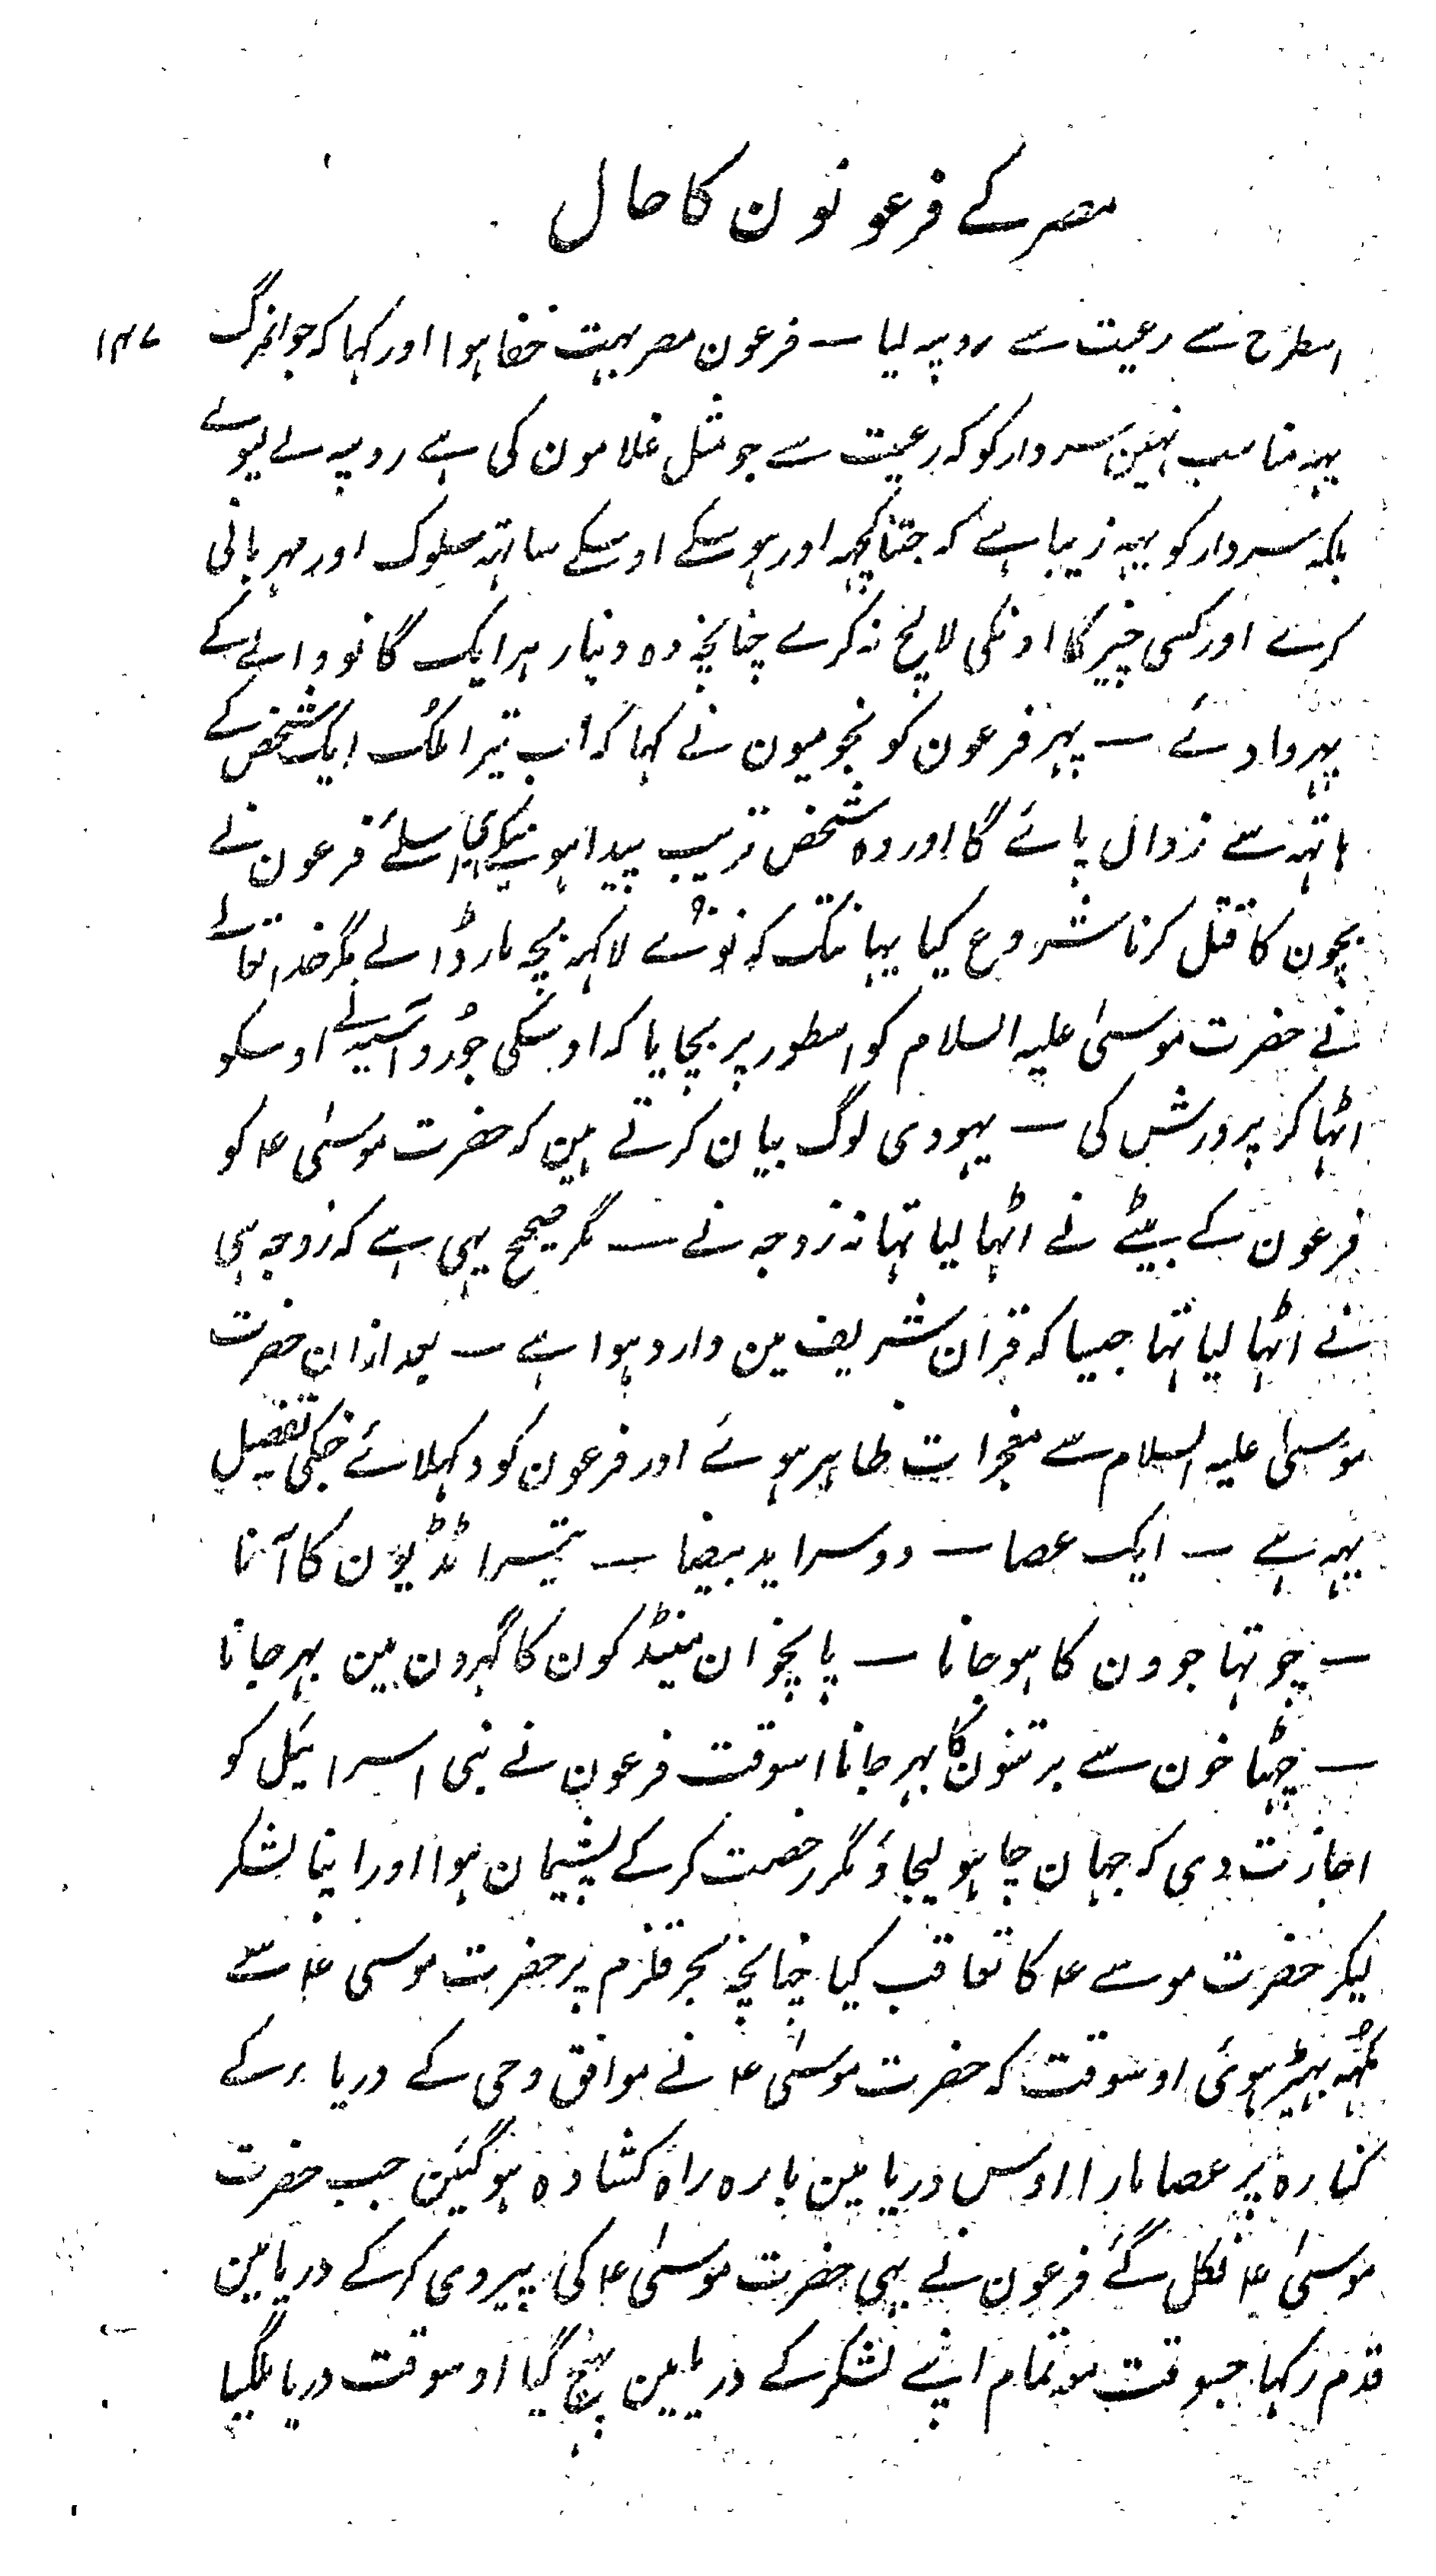 مصر کے فرعونون کا حال
اسطرح سے رعیت سے روپیہ لیا — فرعون مصر بہت خفا ہوا اور کہا کہ جوانمرگ ۱۴۷
یہہ مناسب نہین سردار کو کہ رعیت سے جو مثل غلامون کی ہے روپیہ لے لیوے
بلکہ سردار کو یہہ زیبا ہے کہ جتنا کچہہ اور ہو سکے اوسکے ساتہہ سلوک اور مہربانی
کرے اور کسی چیز کا اونکی لالچ نہ کرے چنانچہ وہ دینار ہر ایک گانو والے کے
پہروا دئے — پہر فرعون کو نجومیون نے کہا کہ اب تیرا ملک ایک شخص کے
ہاتہہ سے زوال پائے گا اور وہ شخص قریب پیدا ہونیکے ہی اسلئے فرعون نے
بچون کا قتل کرنا شروع کیا یہانتک کہ نوے لاکہہ بچہ مار ڈالے مگر خدا تعالے
نے حضرت موسیٰ علیہ السلام کو اسطور پر بچایا کہ اوسکی جورو آسیہ نے اوسکو
اٹہا کر پرورش کی — یہودی لوگ بیان کرتے ہین کہ حضرت موسیٰ ۴ کو
فرعون کے بیٹے نے اٹہا لیا تہا نہ زوجہ نے — مگر صحیح یہی ہے کہ زوجہ ہی
نے اٹہا لیا تہا جیسا کہ قران شریف مین وارد ہوا ہے — بعد ازان حضرت
موسیٰ علیہ السلام سے معجزات ظاہر ہوئے اور فرعون کو دکہلائے جنکی تفصیل
یہہ ہے — ایک عصا — دوسرا ید بیضا — تیسرا ٹڈیون کا آنا
— چوتہا جوون کا ہو جانا — پانچوان مینڈکون کا گہرون مین بہر جانا
— چہٹا خون سے برتنون کا بہر جانا اسوقت فرعون نے بنی اسرائیل کو
اجازت دی کہ جہان چاہو لیجاؤ مگر رخصت کر کے پشیمان ہوا اور اپنا لشکر
لیکر حضرت موسے ۴ کا تعاقب کیا چنانچہ بحر قلزم پر حضرت موسی ۴ سے
مُہہ بہیڑ ہوئی اوسوقت کہ حضرت موسیٰ ۴ نے موافق وحی کے دریاء کے
کنارہ پر عصا مارا اوس دریا مین بارہ راہ کشادہ ہو گئین جب حضرت
موسیٰ ۴ نکل گئے فرعون نے بہی حضرت موسیٰ ۴ کی پیروی کر کے دریا مین
قدم رکہا جسوقت مع تمام اپنے لشکر کے دریا مین پہنچ گیا اوسوقت دریا ملگیا